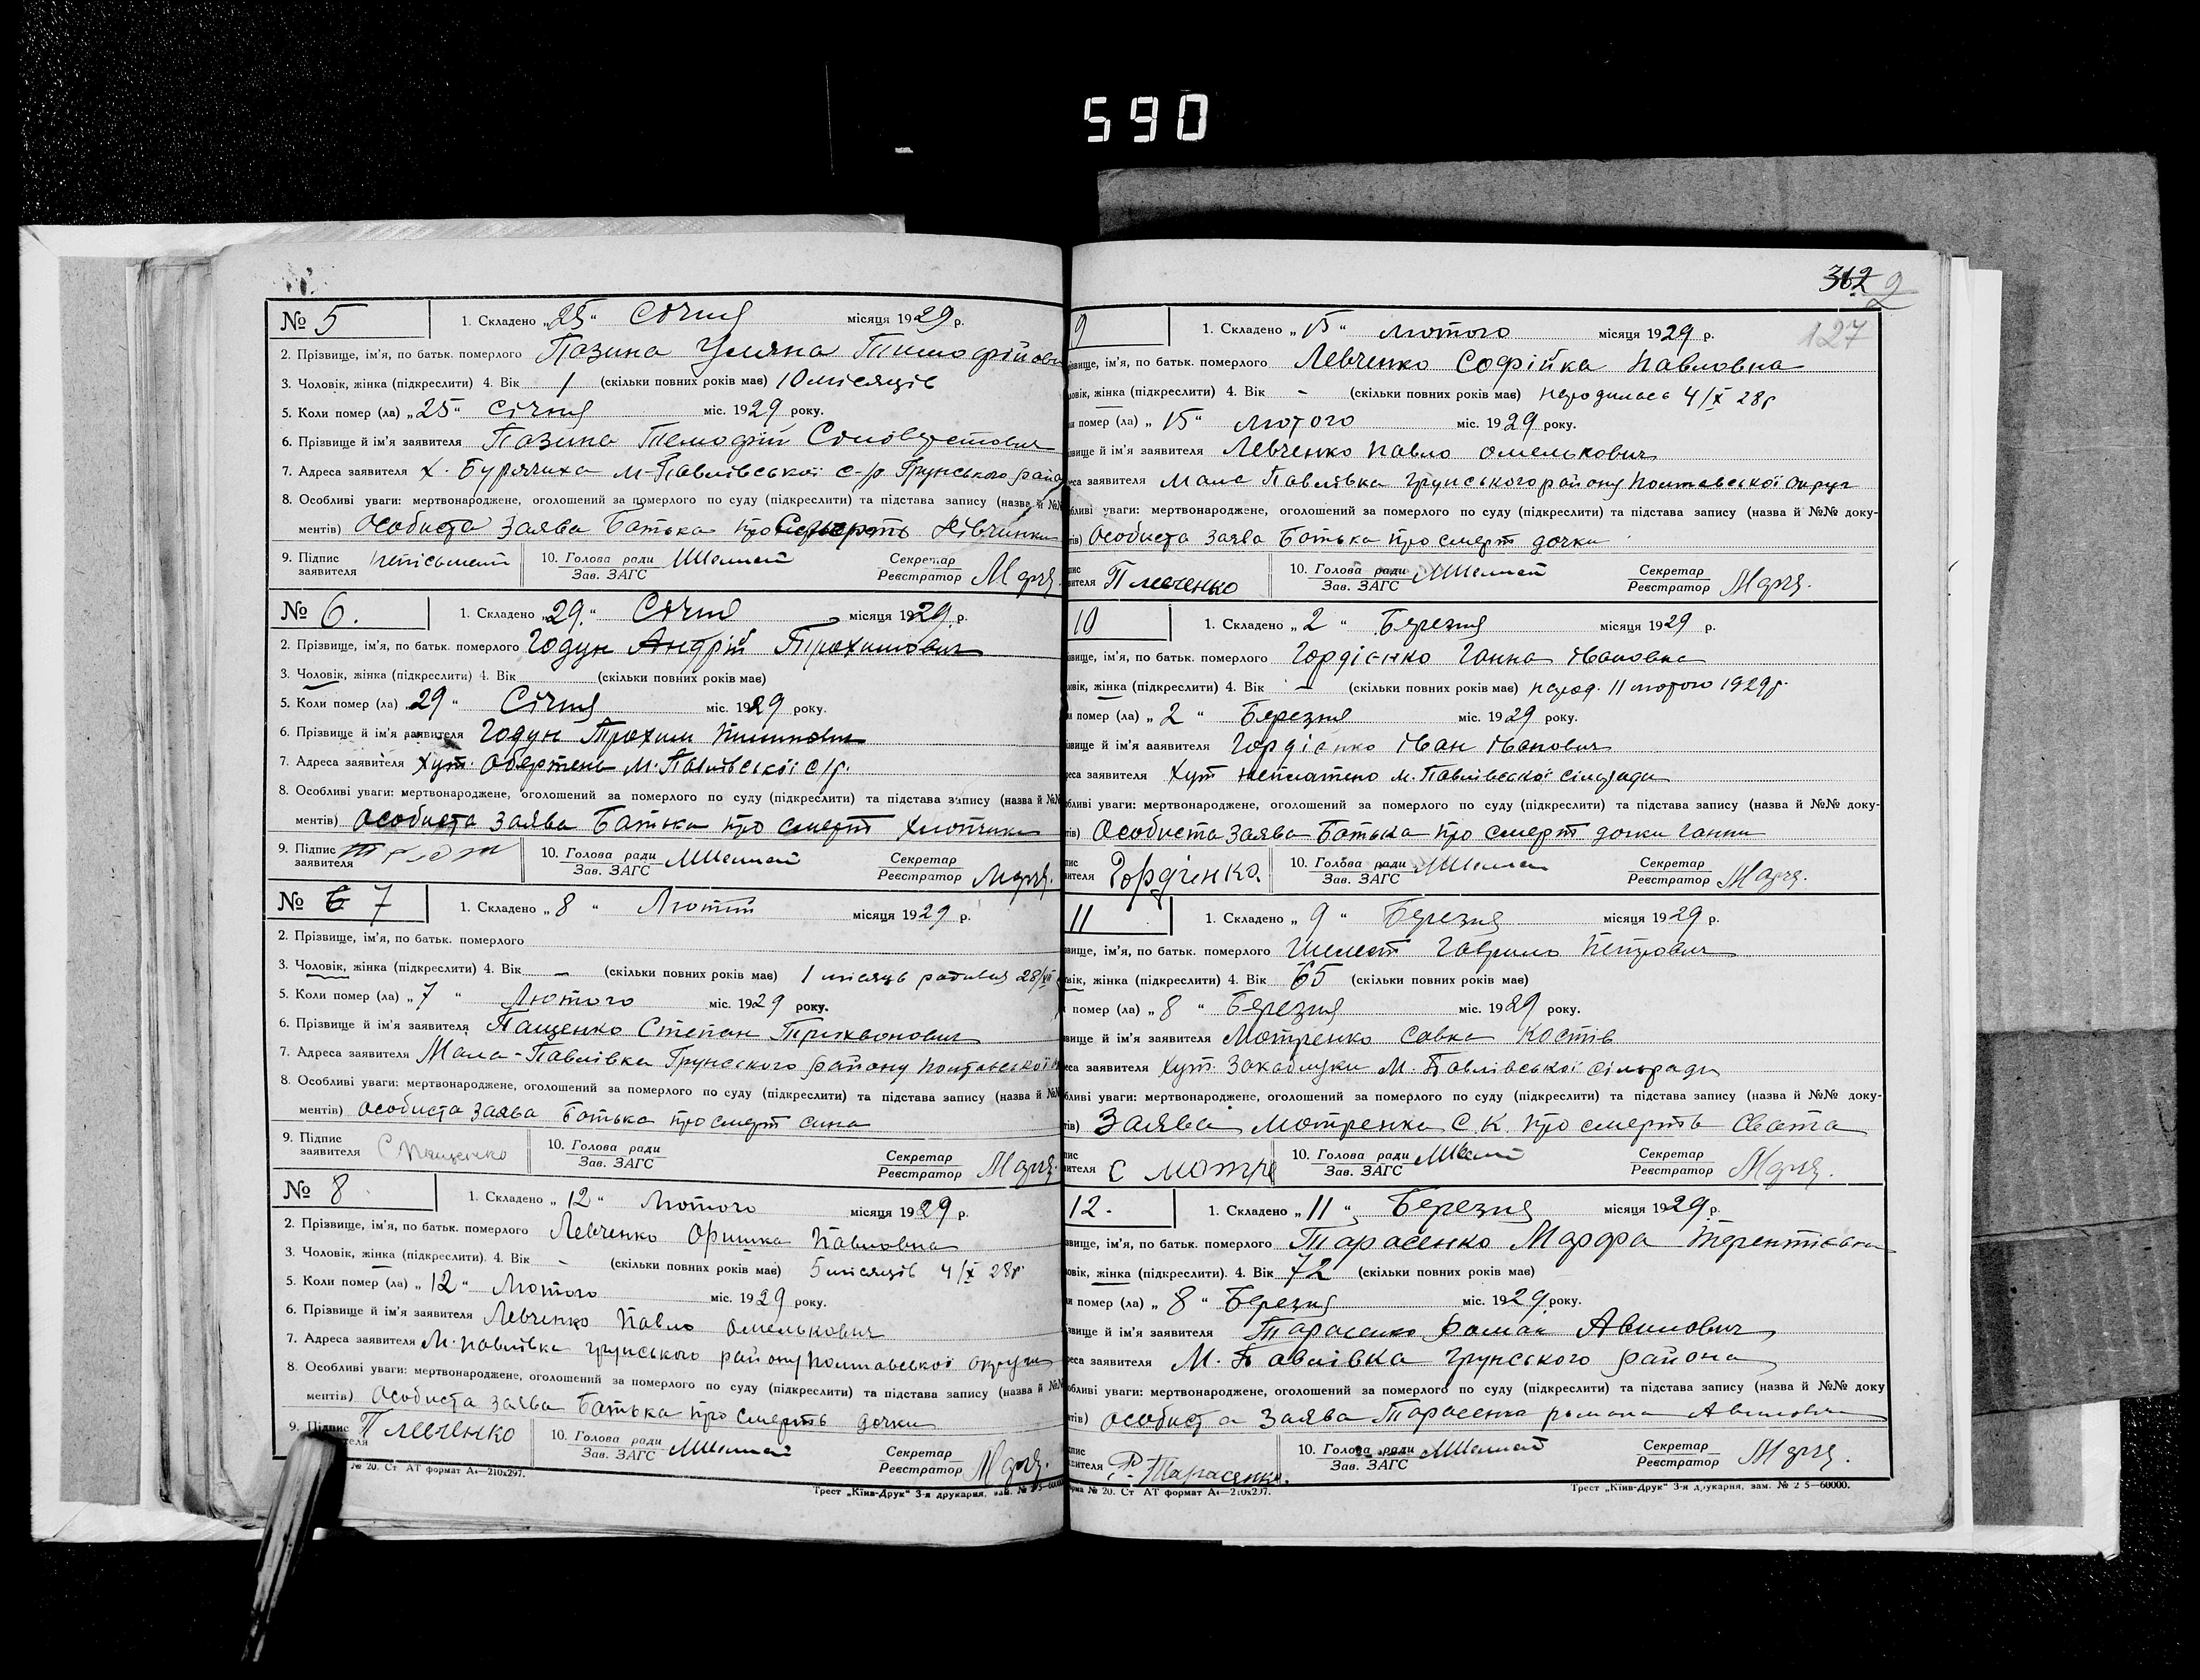 590
№ 5
1. Складено „25“ Січня місяця 1929 р.
2. Прізвище, ім'я, по батьк. померлого Пазина Уляна Тимофійовн
3. Чоловік, жінка (підкреслити) 4. Вік 1 (скільки повних років має) 10 місяців
5. Коли помер (ла) „25“ Січня міс. 1929 року.
6. Прізвище й ім'я заявителя Пазина Темофій
7. Адреса заявителя х. Бурячиха М-Павлівської с-р Грунського рай
8. Особливі уваги: мертвонароджене, оголошений за померлого по суду (підкреслити) та підстава запису (назва й №№
ментів) Особиста заява Батька про Смерть дівчинки
9. Підпис заявителя неписьмений 10. Голова ради Зав. ЗАГС Секретар Реєстратор
№ 6.
1. Складено „29.“ Січня місяця 1929 р.
2. Прізвище, ім'я, по батьк. померлого Годун Андрій Трохимович
3. Чоловік, жінка (підкреслити) 4. Вік (скільки повних років має)
5. Коли помер (ла) 29 “ Січня міс. 1929 року.
6. Прізвище й ім'я заявителя Годун Трохим
7. Адреса заявителя хут. Обертень М. Павлівської с/р.
8. Особливі уваги: мертвонароджене, оголошений за померлого по суду (підкреслити) та підстава запису (назва й №№
ментів) Особиста заява Батька про смерт хлопчика
9. Підпис заявителя 10. Голова ради Зав. ЗАГС Секретар Реєстратор
№ 6 7
1. Складено „8 “ Лютий місяця 1929 р.
2. Прізвище, ім'я, по батьк. померлого
3. Чоловік, жінка (підкреслити) 4. Вік – (скільки повних років має) 1 місяць родився 28/XII
5. Коли помер (ла) „7 “ Лютого міс. 1929 року.
6. Прізвище й ім'я заявителя Пащенко Степан
7. Адреса заявителя Мала-Павлівка Грунського району Полтавської
8. Особливі уваги: мертвонароджене, оголошений за померлого по суду (підкреслити) та підстава запису (назва й №№
ментів) Особиста заява батька про смерт сина
9. Підпис заявителя С Пащенко 10. Голова ради Зав. ЗАГС Секретар Реєстратор
№ 8
1. Складено „12“ Лютого місяця 1929 р.
2. Прізвище, ім'я, по батьк. померлого Левченко Оришка Павловна
3. Чоловік, жінка (підкреслити). 4. Вік - (скільки повних років має) 5 місяців 4/X 28р
5. Коли помер (ла) „12“ Лютого міс. 1929 року.
6. Прізвище й ім'я заявителя Левченко Павло Омелькович
7. Адреса заявителя М. Павлівка Грунського району Полтавської округи
8. Особливі уваги: мертвонароджене, оголошений за померлого по суду (підкреслити) та підстава запису (назва й №№
ментів) Особиста заява Батька про смерть дочки
9. Підпис П левченко 10. Голова ради Зав. ЗАГС Секретар Реєстратор
№ 20. Ст АТ формат А4—210х297.
Трест „Київ-Друк“ 3-я друкарня, зам. №
312 2
127
9
1. Складено „15“ лютого місяця 1929 р.
звище, ім'я, по батьк. померлого Левченко Софійка Павловна
ловік, жінка (підкреслити) 4. Вік - (скільки повних років має) народилась 4/X 28р
помер (ла) „15“ лютого міс. 1929 року.
звище й ім'я заявителя Левченко Павло Омелькович
еса заявителя Мала Павлівка Грунського району Полтавської округ
бливі уваги: мертвонароджене, оголошений за померлого по суду (підкреслити) та підстава запису (назва й №№ доку-
тів) Особиста заява Батька про смерт дочки
П левченко 10. Голова ради Зав. ЗАГС Секретар Реєстратор
10
1. Складено „2 “ Березня місяця 1929 р.
звище, ім'я, по батьк. померлого Гордієнко Ганна Івановна
ловік, жінка (підкреслити) 4. Вік – (скільки повних років має) народ. 11 лютого 1929р.
помер (ла) „2 “ Березня міс. 1929 року.
звище й ім'я заявителя Гордієнко Іван Іванович
еса заявителя Хут М. Павлівської сільради
бливі уваги: мертвонароджене, оголошений за померлого по суду (підкреслити) та підстава запису (назва й №№ доку-
тів) Особиста заява Батька про смерт дочки Ганни
Гордіенко. 10. Голова ради Зав. ЗАГС Секретар Реєстратор
11
1. Складено „9 “ Березня місяця 1929 р.
звище, ім'я, по батьк. померлого Шемет Гаврило Петрович
вік, жінка (підкреслити) 4. Вік 65 (скільки повних років має)
помер (ла) „8 “ Березня міс. 1929 року.
звище й ім'я заявителя Мотренко Савка Костів
еса заявителя хут. Закаблуки М. Павлівської сільради
бливі уваги: мертвонароджене, оголошений за померлого по суду (підкреслити) та підстава запису (назва й №№ доку-
тів) Заява Мотренка С. К. про смерть Свата
С мотре 10. Голова ради Зав. ЗАГС Секретар Реєстратор
12.
1. Складено „11 “ Березня місяця 1929 р.
звище, ім'я, по батьк. померлого Тарасенко Марфа Терентієвна
ловік, жінка (підкреслити). 4. Вік 72 (скільки повних років має)
помер (ла) „8 “ Березня міс. 1929 року.
звище й ім'я заявителя Тарасенко Роман Авилович
еса заявителя М. Павлівка Грунського района
бливі уваги: мертвонароджене, оголошений за померлого по суду (підкреслити) та підстава запису (назва й №№ доку
тів) Особиста заява Тарасенка романа Авиловича
Р. Тарасенко. 10. Голова ради Зав. ЗАГС Секретар Реєстратор
рма № 20. Ст АТ формат А4—210х297.
Трест „Київ-Друк“ 3-я друкарня, зам. № 2 5—60000.